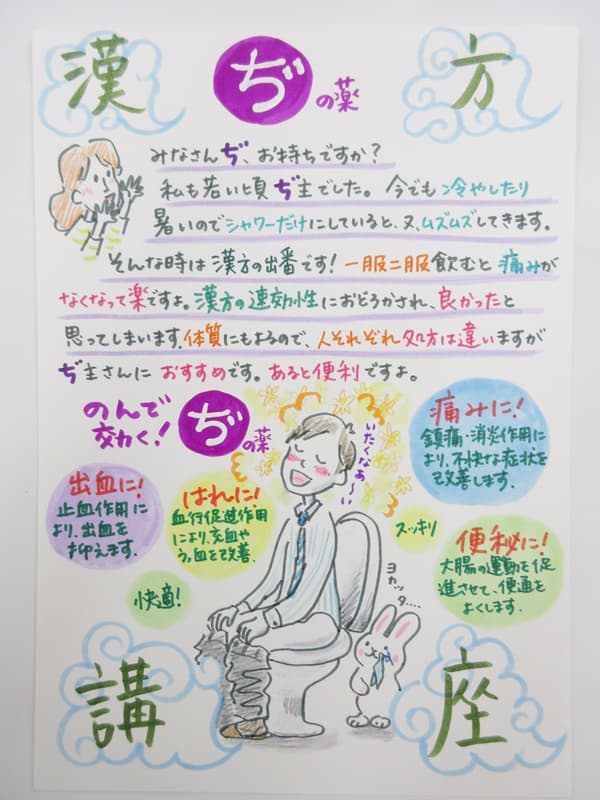 漢方
ぢの薬
みなさんぢ、お持ちですか?
私も若い頃ぢ主でした。今でも冷やしたり
暑いのでシャワーだけにしていると、又、ムズムズしてきます。
そんな時は漢方の出番です!一服二服飲むと痛みが
なくなって楽ですよ。漢方の速効性におどろかされ、良かったと
思ってしまいます。体質にもよるので、人それぞれ処方は違いますが
ぢ主さんにおすすめです。あると便利ですよ。
のんで
効く!
ぢの薬
いたくなぁ〜い
痛みに!
鎮痛・消炎作用に
より、不快な症状を
改善します。
出血に!
止血作用に
より、出血を
抑えます。
はれに!
血行促進作用
により、充血や
うっ血を改善。
スッキリ
便秘に!
大腸の運動を促
進させて、便通を
よくします。
快適!
ヨカッタ....
講座